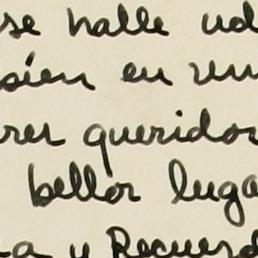 se halle ud
bien en un
rer queridos
bellos luga
a y Recuerd